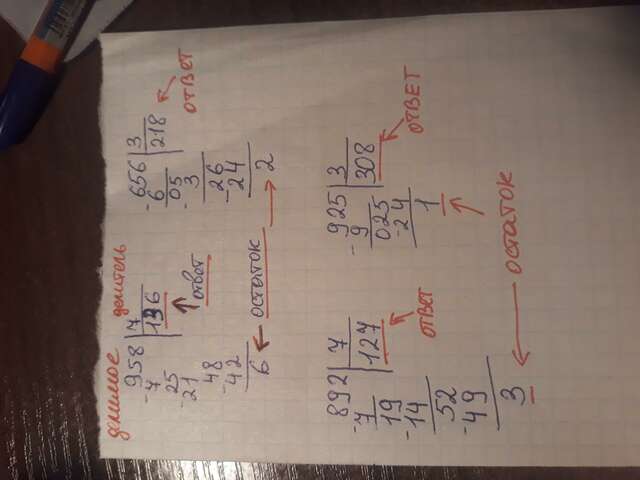 делимое делитель
958 7
-7 136
25
-21
48
-42
6
ответ
остаток
656 3
-6 218
05
-3
26
-24
2
ответ
892 7
-7 127
19
-14
52
-49
3
ответ
925 3
-9 308
025
-24
1
ответ
остаток